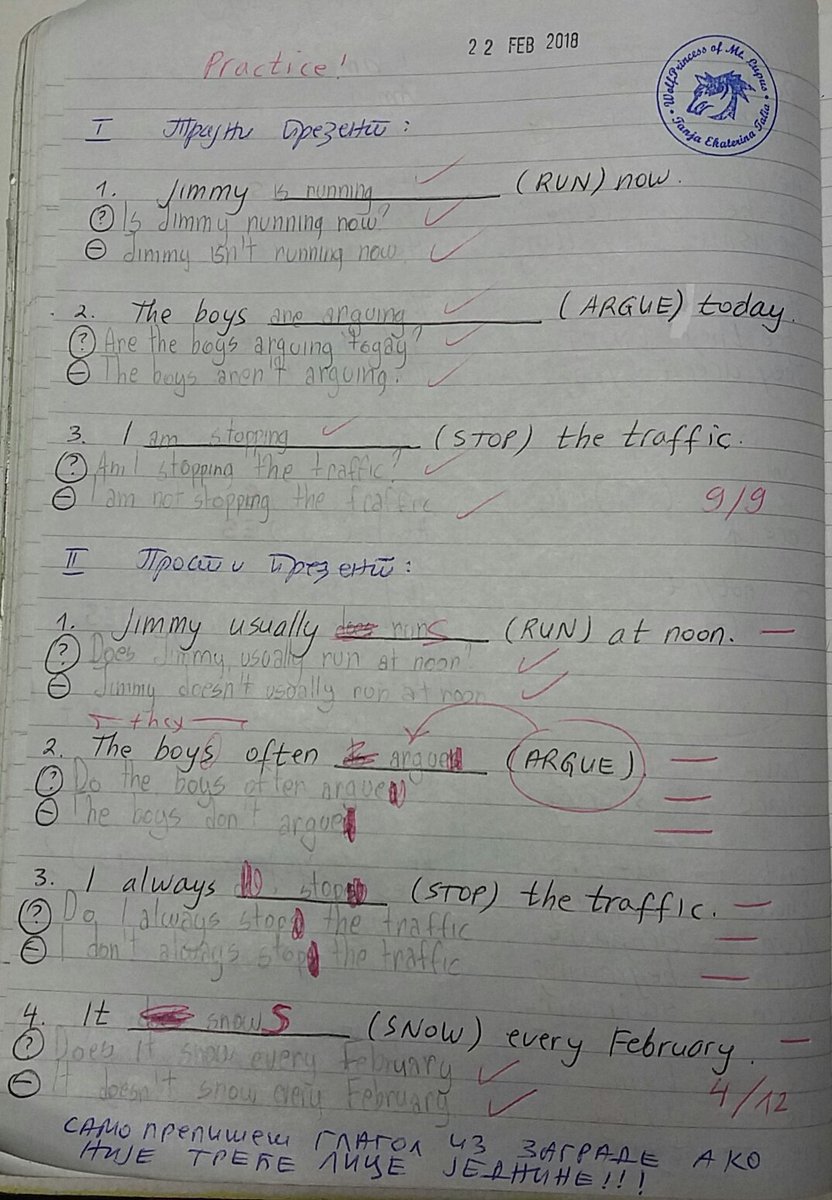 22 FEB 2018
Practice!
WolfPrincess of Mt. Lupus
Tanja Ekaterina Talia
I Трајни презент:
1. Jimmy is running (RUN) now.
? Is Jimmy running now?
− Jimmy isn't running now
2. The boys are arguing (ARGUE) today.
? Are the boys arguing togay?
− The boys aren't arguing.
3. I am stopping (STOP) the traffic.
? Am I stopping the traffic?
− I am not stopping the traffic
9/9
II Прости презент:
1. Jimmy usually does runs (RUN) at noon. —
? Does Jimmy usually run at noon?
− Jimmy doesn't usually run at noon
they
2. The boys often argue (ARGUE). —
? Do the boys often argue —
− The boys don't argue —
3. I always do stop (STOP) the traffic. —
? Do I always stop the traffic —
− I don't always stop the traffic —
4. It snows (SNOW) every February. —
? Does It snow every February
− It doesn't snow every February
4/12
САМО ПРЕПИШЕШ ГЛАГОЛ ИЗ ЗАГРАДЕ АКО
НИЈЕ ТРЕЋЕ ЛИЦЕ ЈЕДНИНЕ!!!